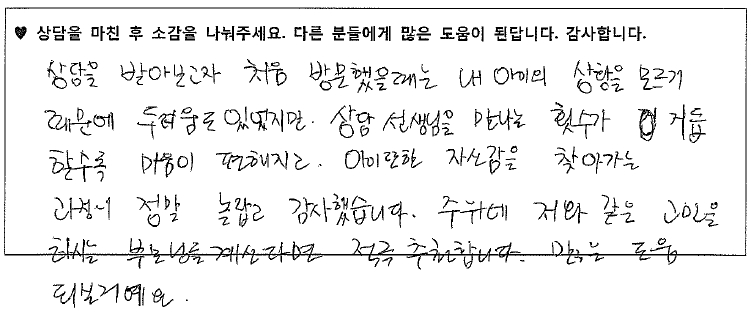 ♥ 상담을 마친 후 소감을 나눠주세요. 다른 분들에게 많은 도움이 된답니다. 감사합니다.
상담을 받아보고자 처음 방문했을때는 내 아이의 상황을 모르기
때문에 두려움도 있었지만. 상담 선생님을 만나는 횟수가 거듭
할수록 마음이 편해지고. 아이 또한 자신감을 찾아가는
과정이 정말 놀랍고 감사했습니다. 주위에 저와 같은 고민을
하시는 부모님들 계신다면 적극 추천합니다. 많은 도움
되실거예요.